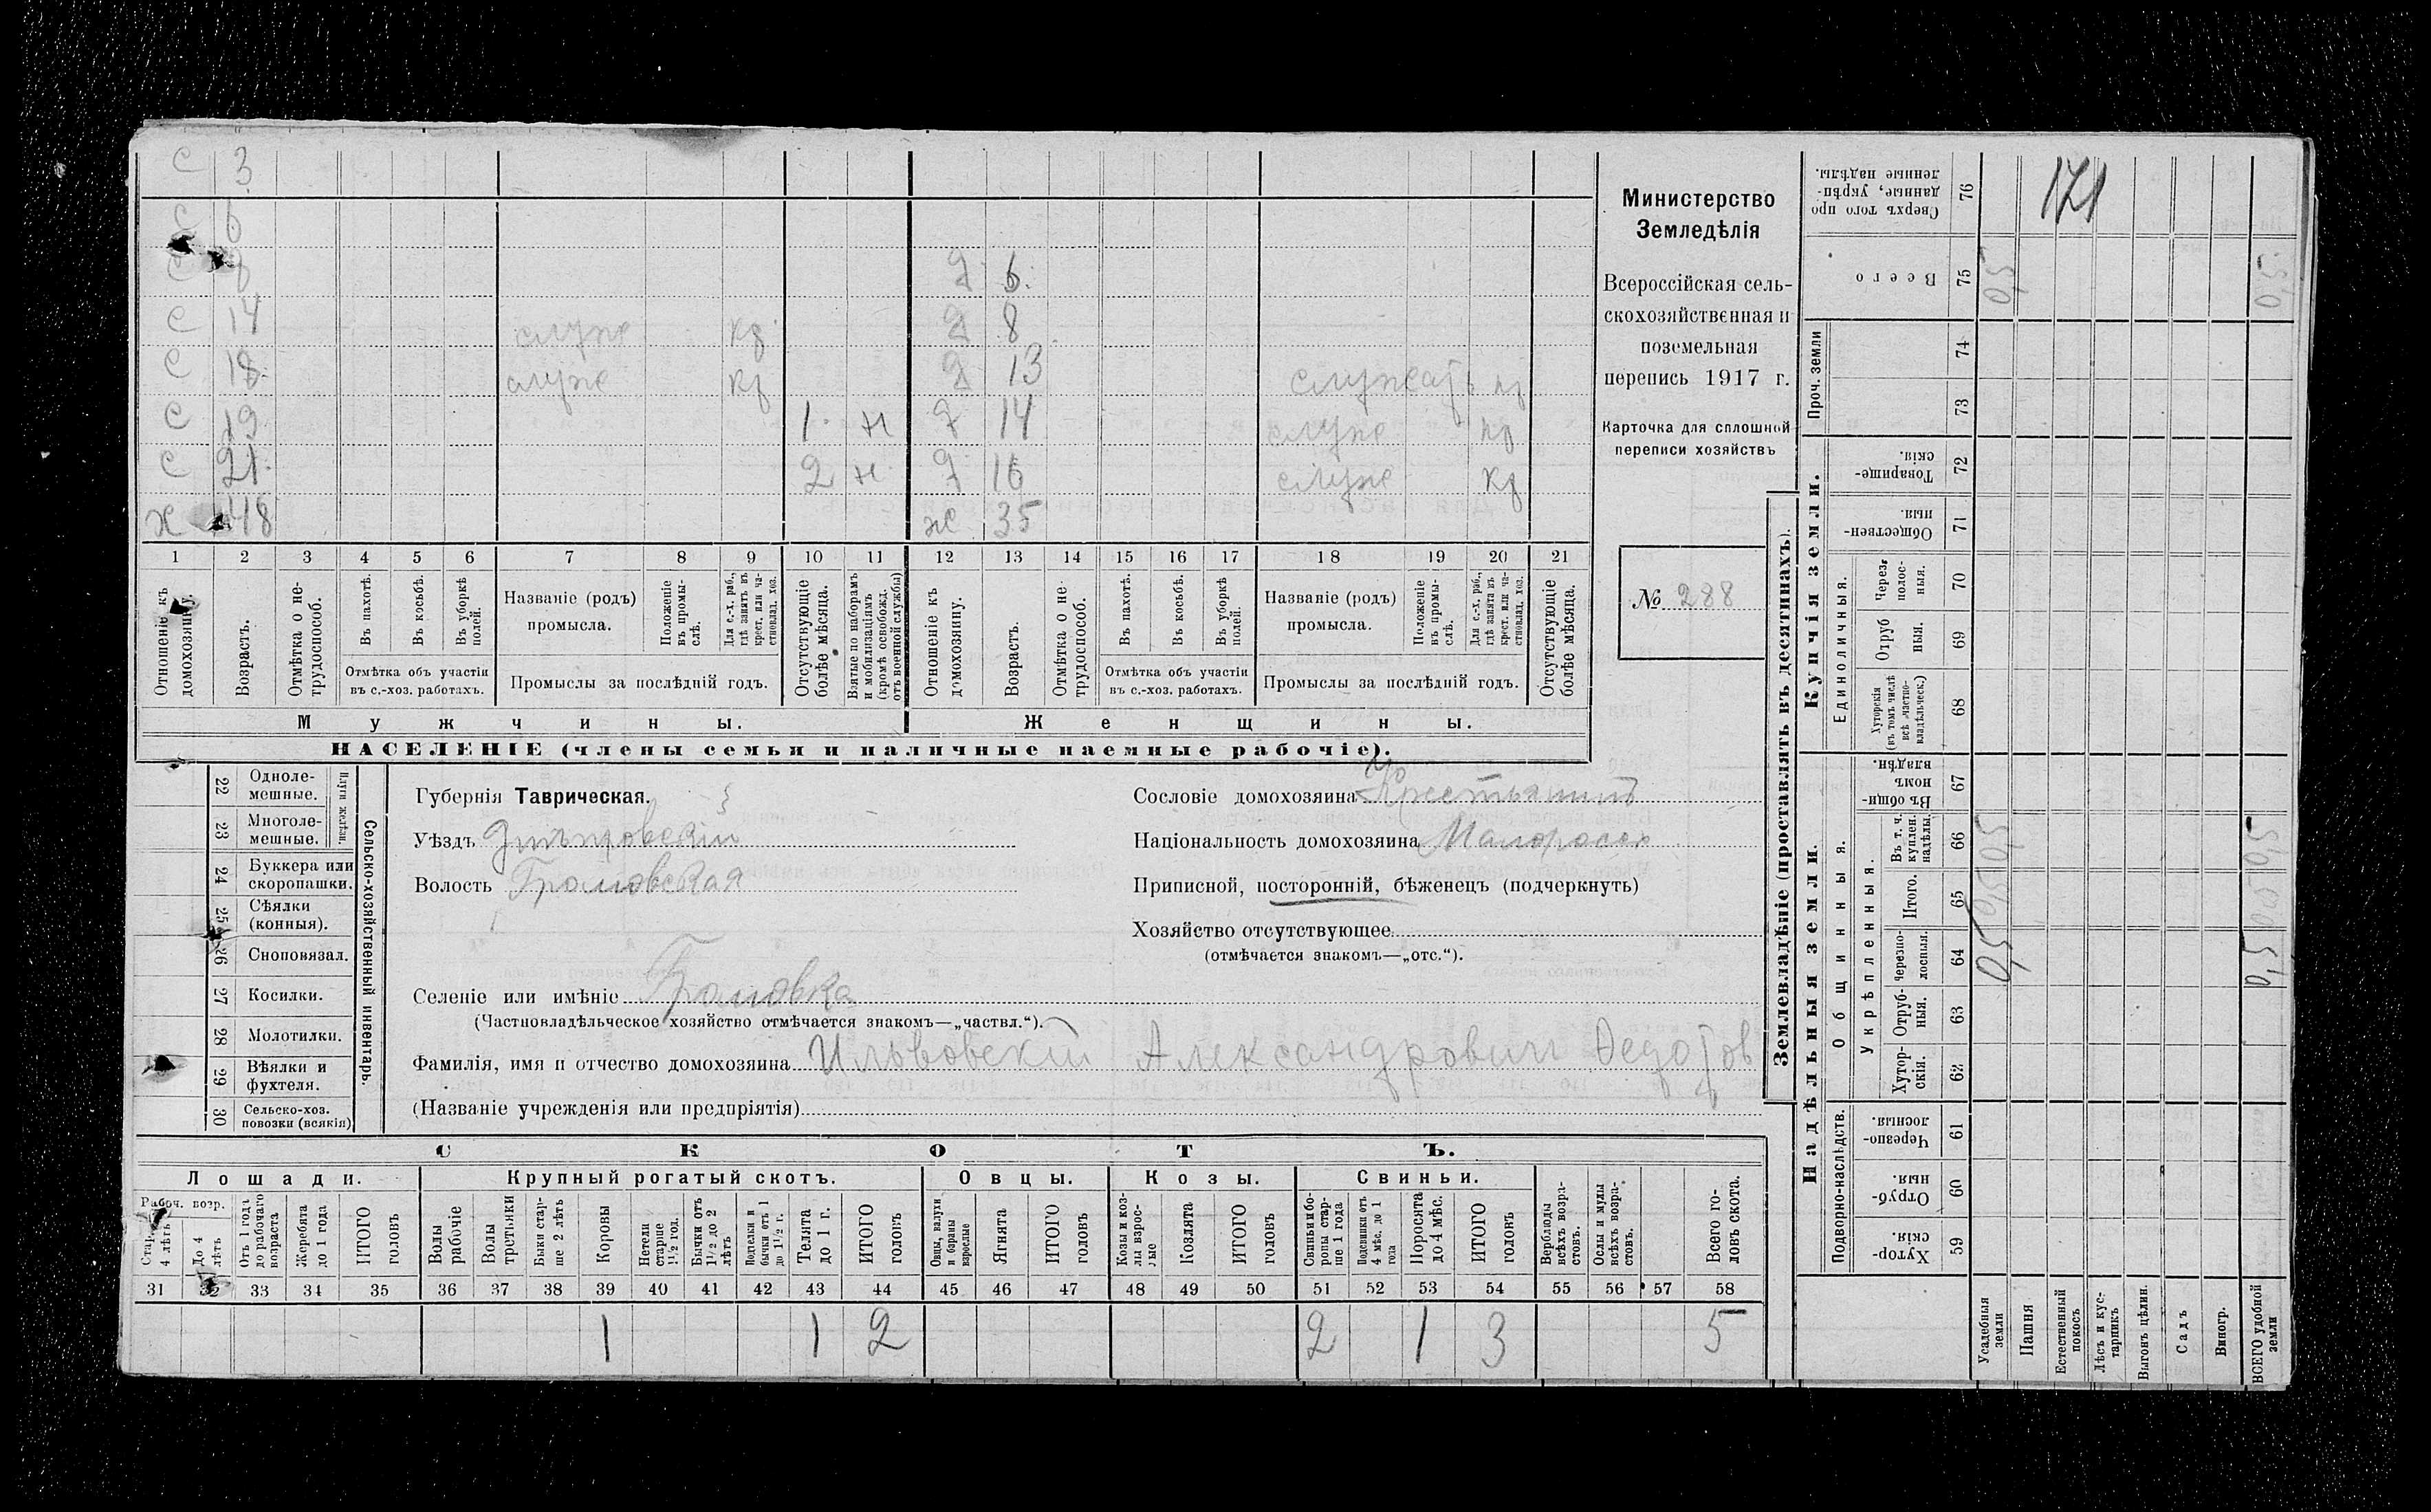 С 3
С 6
С 8 Д 6
С 14 служ кр Д 8
С 18 служ кр Д 13 служатъ
С 19 1 н Д 14 служ
С 21 2 н Д 16 служ кр
Х 48 ж 35
1 2 3 4 5 6 7 8 9 10 11 12 13 14 15 16 17 18 19 20 21
Отношеніе къ домохозяину.
Возрастъ.
Отмѣтка о не-трудоспособ.
Въ пахотѣ.
Въ косьбѣ.
Въ уборкѣ полей.
Отмѣтка объ участіи въ с.-хоз. работахъ.
Названіе (родъ) промысла.
Положеніе въ промы-слѣ.
Для с.-х. раб., гдѣ занятъ въ крест. или ча-стновлад. хоз.
Промыслы за послѣдній годъ.
Отсутствующіе болѣе мѣсяца.
Взятые по наборамъ и мобилизаціямъ (кромѣ освобожд. отъ военной службы)
Отношеніе къ домохозяину.
Возрастъ.
Отмѣтка о не-трудоспособ.
Въ пахотѣ.
Въ косьбѣ.
Въ уборкѣ полей.
Отмѣтка объ участіи въ с.-хоз. работахъ.
Названіе (родъ) промысла.
Положеніе въ промы-слѣ.
Для с.-х. раб., гдѣ занята въ крест. или ча-стновлад. хоз.
Промыслы за послѣдній годъ.
Отсутствующіе болѣе мѣсяца.
Мужчины.
Женщины.
НАСЕЛЕНІЕ (члены семьи и наличные наемные рабочіе).
Министерство
Земледѣлія
Всероссійская сель-
скохозяйственная и
поземельная
перепись 1917 г.
Карточка для сплошной
переписи хозяйствъ
№ 288
22 Одноле-мешные.
23 Многоле-мешные.
Плуги желѣзн.
24 Буккера или скоропашки.
25 Сѣялки (конныя).
26 Сноповязал.
27 Косилки.
28 Молотилки.
29 Вѣялки и фухтеля.
30 Сельско-хоз. повозки (всякія)
Сельско-хозяйственный инвентарь.
Губернія Таврическая.
Уѣздъ Днѣпровскій
Волость Громовская
Селеніе или имѣніе Громовка
(Частновладѣльческое хозяйство отмѣчается знакомъ—„частвл.“).
Фамилія, имя и отчество домохозяина Ильвовскій Александрович Федотов
(Названіе учрежденія или предпріятія)
Сословіе домохозяина Крестьянинъ
Національность домохозяина Малоросс
Приписной, посторонній, бѣженецъ (подчеркнуть)
Хозяйство отсутствующее
(отмѣчается знакомъ—„отс.“).
СКОТЪ.
Лошади.
Крупный рогатый скотъ.
Овцы.
Козы.
Свиньи.
Рабоч. возр.
Стар. 4 лѣтъ
До 4 лѣтъ
Отъ 1 года до рабочаго возраста
Жеребята до 1 года
ИТОГО головъ
Волы рабочіе
Волы третьяки
Быки стар-ше 2 лѣтъ
Коровы
Нетели старше 1½ год.
Бычки отъ 1½ до 2 лѣтъ
Подтелки и бычки отъ 1 до 1½ г.
Телята до 1 г.
ИТОГО головъ
Овцы, валухи и бараны взрослые
Ягнята
ИТОГО головъ
Козы и коз-лы взрос-лые
Козлята
ИТОГО головъ
Свиньи и бо-ровы стар-ше 1 года
Подсвинки отъ 4 мѣс. до 1 года
Поросята до 4 мѣс.
ИТОГО головъ
Верблюды всѣхъ возра-стовъ.
Ослы и мулы всѣхъ возра-стовъ.
Всего го-ловъ скота.
31 32 33 34 35 36 37 38 39 40 41 42 43 44 45 46 47 48 49 50 51 52 53 54 55 56 57 58
1 1 2 2 1 3 5
Землевладѣніе (проставлять въ десятинахъ).
Сверхъ того про-данные, укрѣп-ленные надѣлы. 76
171
Всего 75 0,5 0,5
Проч. земли
74
73
Купчія земли.
Товарище-скія. 72
Обществен-ныя. 71
Единоличныя.
Через-полос-ныя. 70
Отруб-ныя. 69
Хуторскія (въ томъ числѣ всѣ частно-владѣльческ.) 68
Надѣльныя земли.
Общинныя.
Въ общин-номъ владѣн. 67
Укрѣпленныя.
Въ т. ч. куплен. надѣлы. 66 0,5 0,5
Итого. 65 0,5 0,5
Черезпо-лосныя. 64 0,5 0,5
Отруб-ныя. 63
Хутор-скія. 62
Подворно-наслѣдств.
Черезпо-лосныя. 61
Отруб-ныя. 60
Хутор-скія. 59
Усадебныя земли
Пашня
Естественный покосъ
Лѣсъ и кус-тарникъ
Выгонъ цѣлин.
Садъ
Виногр.
ВСЕГО удобной земли